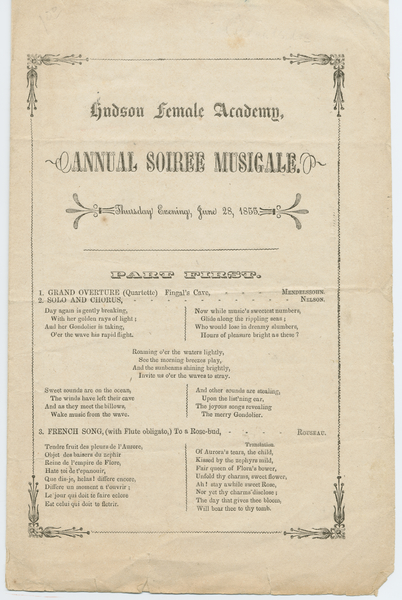 Hudson Female Academy,
ANNUAL SOIREE MUSIGALE.
Thursday Evening, June 28, 1855.
PART FIRST.
1. GRAND OVERTURE (Quartette) Fingal's Cave, - - - MENDELSSOHN.
2. SOLO AND CHORUS, - - - - - - - - - NELSON.
Day again is gently breaking,
With her golden rays of light;
And her Gondolier is taking,
O'er the wave his rapid flight.
Now while music's sweetest numbers,
Glide along the rippling seas;
Who would lose in dreamy slumbers,
Hours of pleasure bright as these?
Roaming o'er the waters lightly,
See the morning breezes play,
And the sunbeams shining brightly,
Invite us o'er the waves to stray.
Sweet sounds are on the ocean,
The winds have left their cave
And as they meet the billows,
Wake music from the wave.
And other sounds are stealing,
Upon the list'ning ear,
The joyous songs revealing
The merry Gondolier.
3. FRENCH SONG, (with Flute obligato,) To a Rose-bud, - - - - ROUSEAU.
Tendre fruit des pleurs de l'Aurore,
Objet des baisers du zephir
Reine de l'empire de Flore,
Hate toi de t'epanouir,
Que dis-je, helas! differe encore,
Differe un moment a t'ouvrir;
Le jour qui doit te faire eclore
Est celui qui doit te fletrir.
Translation.
Of Aurora's tears, the child,
Kissed by the zephyrs mild,
Fair queen of Flora's bower,
Unfold thy charms, sweet flower,
Ah! stay awhile sweet Rose,
Nor yet thy charms disclose;
The day that gives thee bloom,
Will bear thee to thy tomb.